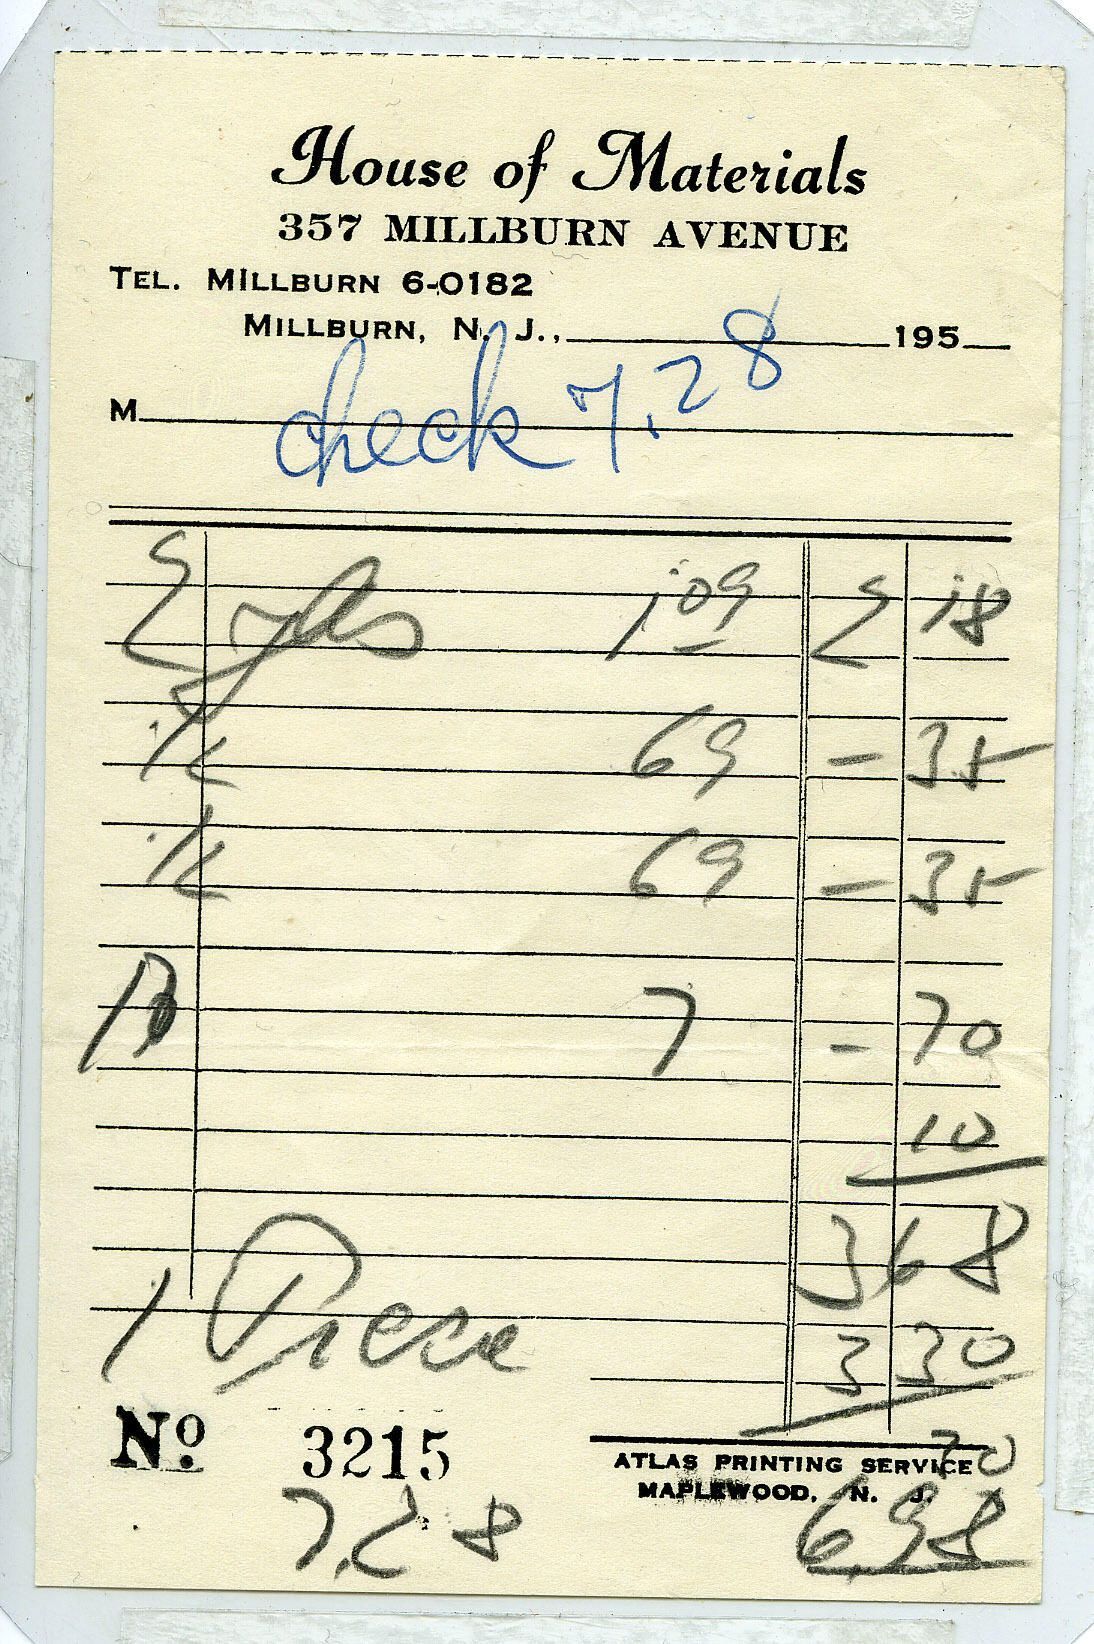 House of Materials
357 MILLBURN AVENUE
TEL. MILLBURN 6-0182
MILLBURN, N. J., 195
M check 7.28
2 yds 1 09 2 18
1/2 69 - 35
1/2 69 - 35
10 7 - 70
10
3 68
1 Piece 3 30
No. 3215
ATLAS PRINTING SERVICE
MAPLEWOOD, N. J.
7.28 6.98